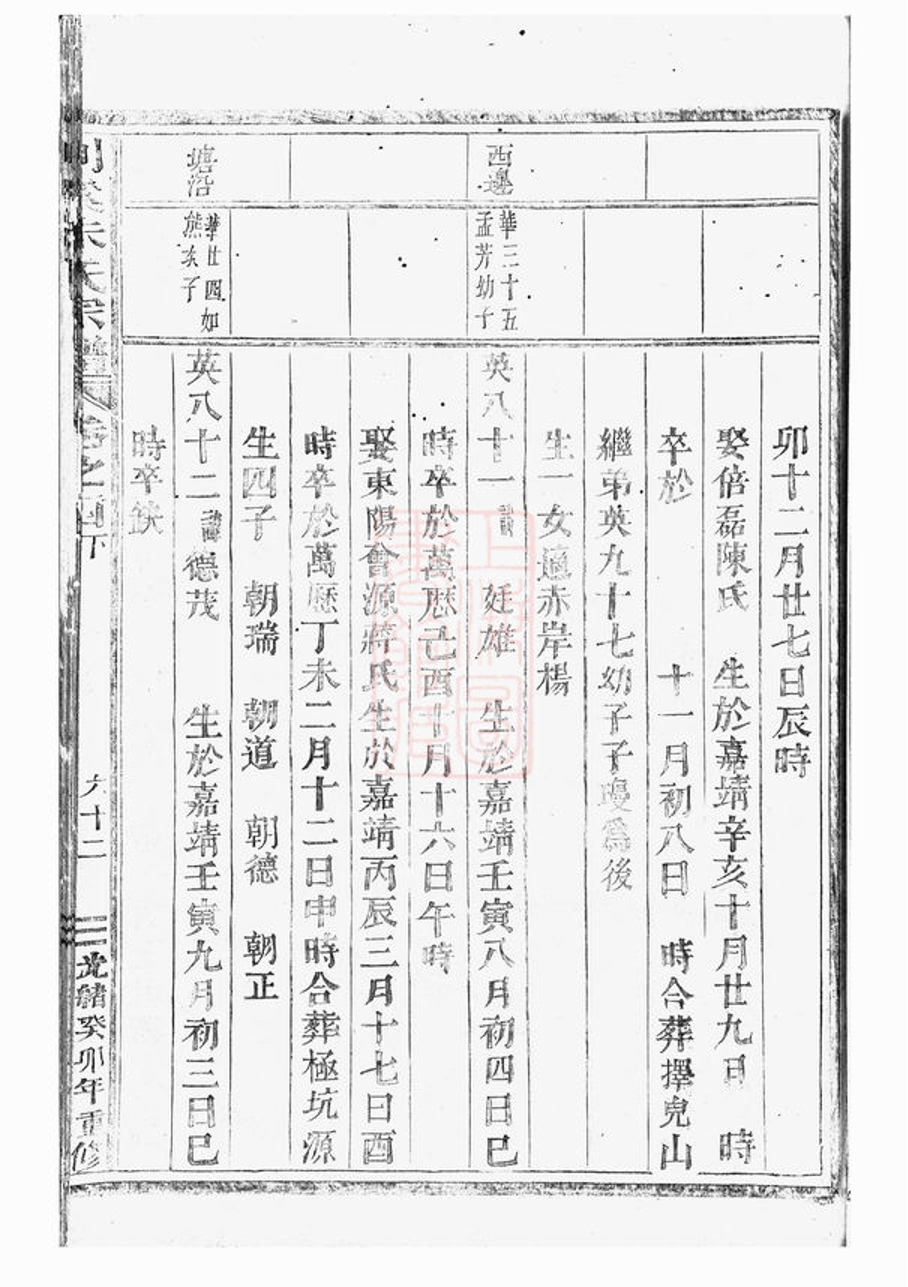 卯十二月廿七日辰時
娶倍磊陳氏 生於嘉靖辛亥十月廿九日 時
卒於 十一月初八日 時合葬擇兒山
繼弟英九十七幼子子璁為後
生一女適赤岸楊
西邊
華三十五
孟芳幼子
英八十一 諱 廷雄 生於嘉靖壬寅八月初四日巳
時卒於萬歷己酉十月十六日午時
娶東陽會源蔣氏生於嘉靖丙辰三月十七日酉
時卒於萬歷丁未二月十二日申時合葬極坑源
生四子 朝瑞 朝道 朝德 朝正
塘沿
華廿四如
熊次子
英八十二 諱 德茂 生於嘉靖壬寅九月初三日巳
時卒缺
朱氏宗譜 卷之 下 六十二 光緒癸卯年重修